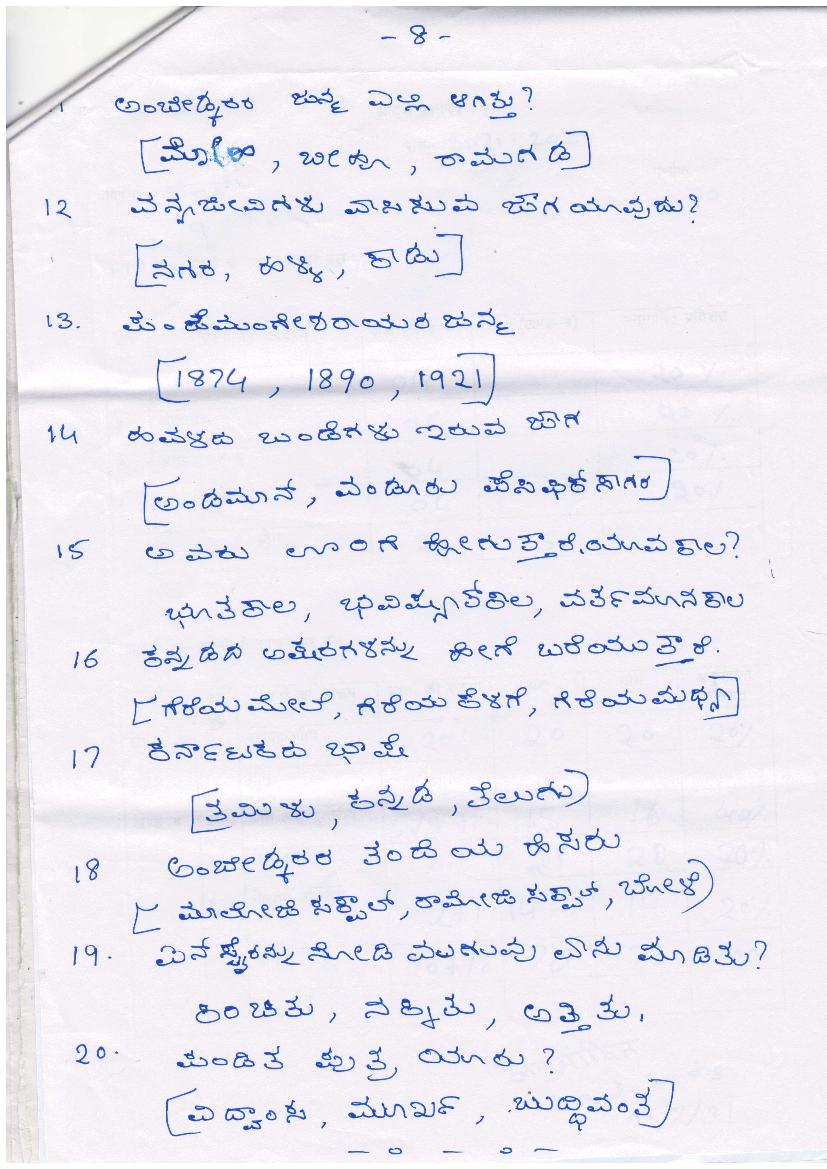 - 8 -
ಅಂಬೇಡ್ಕರರ ಜನ್ಮ ಎಲ್ಲಿ ಆಗಿತ್ತು?
, ಬೀಡು, ರಾಮಗಡ]
12 ವನ್ಯಜೀವಿಗಳು ವಾಸಿಸುವ ಜಾಗ ಯಾವುದು?
[ನಗರ, ಹಳ್ಳಿ, ಕಾಡು]
13. ಪಂಜೆಮಂಗೇಶರಾಯರ ಜನ್ಮ
[1874, 1890, 1921]
14 ಹವಳದ ಬಂಡೆಗಳು ಇರುವ ಜಾಗ
[ಅಂಡಮಾನ್, ವಂಡೂರು ಪೆಸಿಫಿಕ್ ಸಾಗರ]
15 ಅವರು ಊರಿಗೆ ಹೋಗುತ್ತಾರೆ.ಯಾವಕಾಲ?
ಭೂತಕಾಲ, ಭವಿಷ್ಯತ್‌ಕಾಲ, ವರ್ತಮಾನಕಾಲ
16 ಕನ್ನಡದ ಅಕ್ಷರಗಳನ್ನು ಹೀಗೆ ಬರೆಯುತ್ತಾರೆ.
[ಗೆರೆಯ ಮೇಲೆ, ಗೆರೆಯ ಕೆಳಗೆ, ಗೆರೆಯ ಮಧ್ಯೆ]
17 ಕರ್ನಾಟಕದ ಭಾಷೆ
[ತಮಿಳು, ಕನ್ನಡ, ತೆಲುಗು)
18 ಅಂಬೇಡ್ಕರರ ತಂದೆಯ ಹೆಸರು
[ ಮಾಲೋಜಿ ಸಕ್ಪಾಲ್, ರಾಮೋಜಿ ಸಕ್ಪಾಲ್, ಬೋಳೆ)
19. ನೋಡಿ ಮಾಡಿತು?
ಕಿರಿಚಿತು, ನಕ್ಕಿತು, ಅತ್ತಿತು.
20. ಪಂಡಿತ ಪುತ್ರ ಯಾರು?
[ವಿದ್ವಾಂಸ, ಮೂರ್ಖ, ಬುದ್ಧಿವಂತ]
- 0 - 0 -